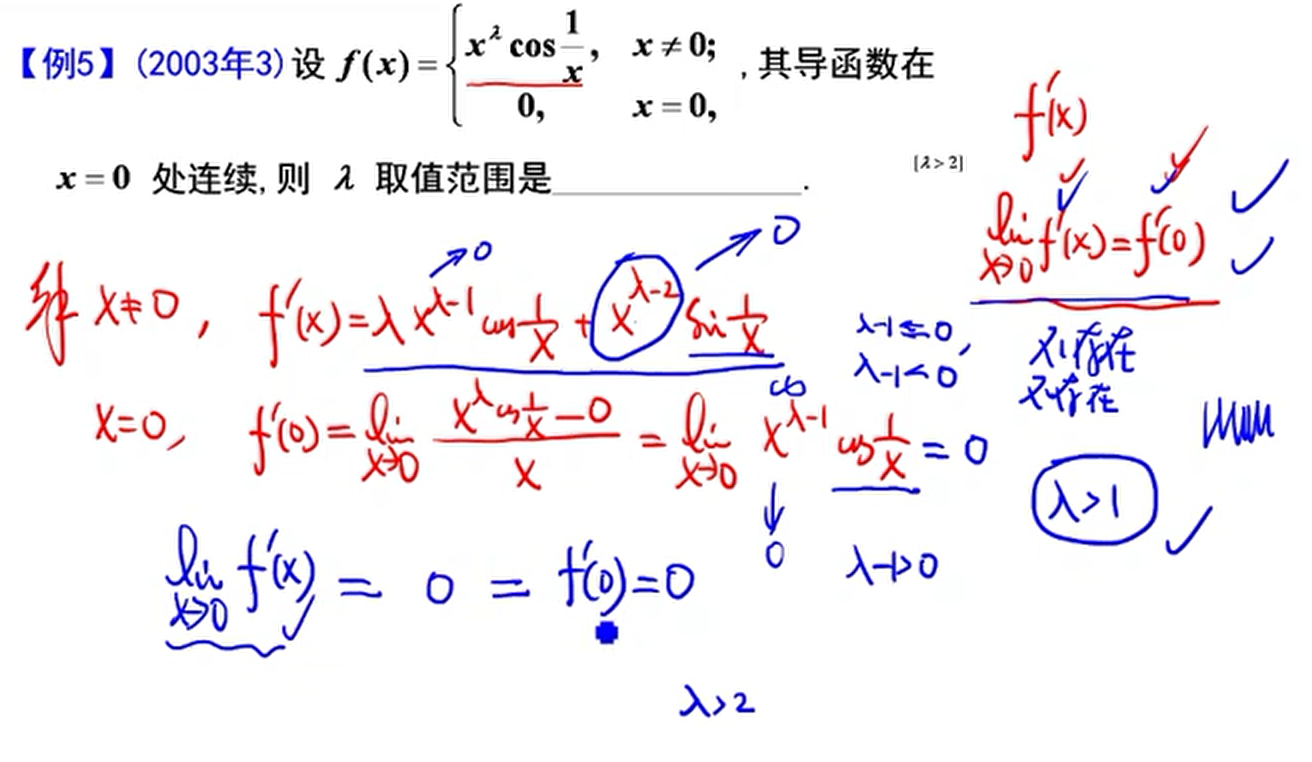 【例5】(2003年3) 设 f(x) = { x^λ cos 1/x, x ≠ 0; 0, x = 0, , 其导函数在
x = 0 处连续, 则 λ 取值范围是____________.
[λ > 2]
f′(x)
lim x→0 f′(x) = f′(0)
x≠0, f′(x) = λ x^(λ-1) cos 1/x + x^(λ-2) sin 1/x
→ 0
→ 0
λ-1 ≤ 0,
λ-1 < 0
x=0, f′(0) = lim x→0 (x^λ cos 1/x - 0)/x = lim x→0 x^(λ-1) cos 1/x = 0
∞
↓ 0
λ-1>0
λ>1
lim x→0 f′(x) = 0 = f′(0) = 0
λ>2